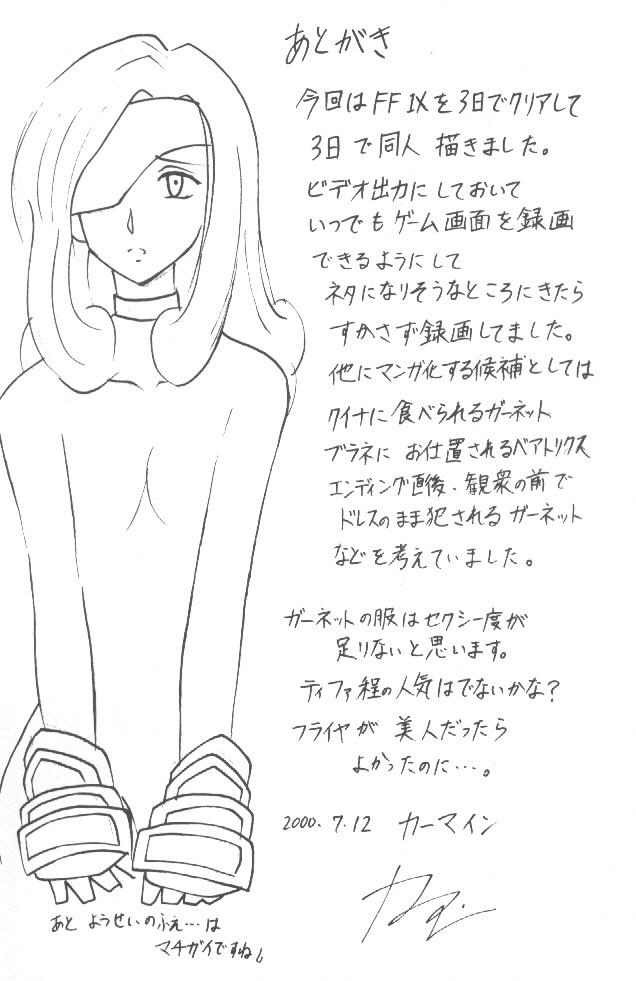 あとがき
今回はFFIXを3日でクリアして
3日で同人描きました。
ビデオ出力にしておいて
いつでもゲーム画面を録画
できるようにして
ネタになりそうなところにきたら
すかさず録画してました。
他にマンガ化する候補としては
クイナに食べられるガーネット
ブラネにお仕置されるベアトリクス
エンディング直後、観衆の前で
ドレスのまま犯されるガーネット
などを考えていました。
ガーネットの服はセクシー度が
足りないと思います。
ティファ程の人気はでないかな?
フライヤが美人だったら
よかったのに…。
2000.7.12 カーマイン
あとようせいのふえ…は
マチガイですね